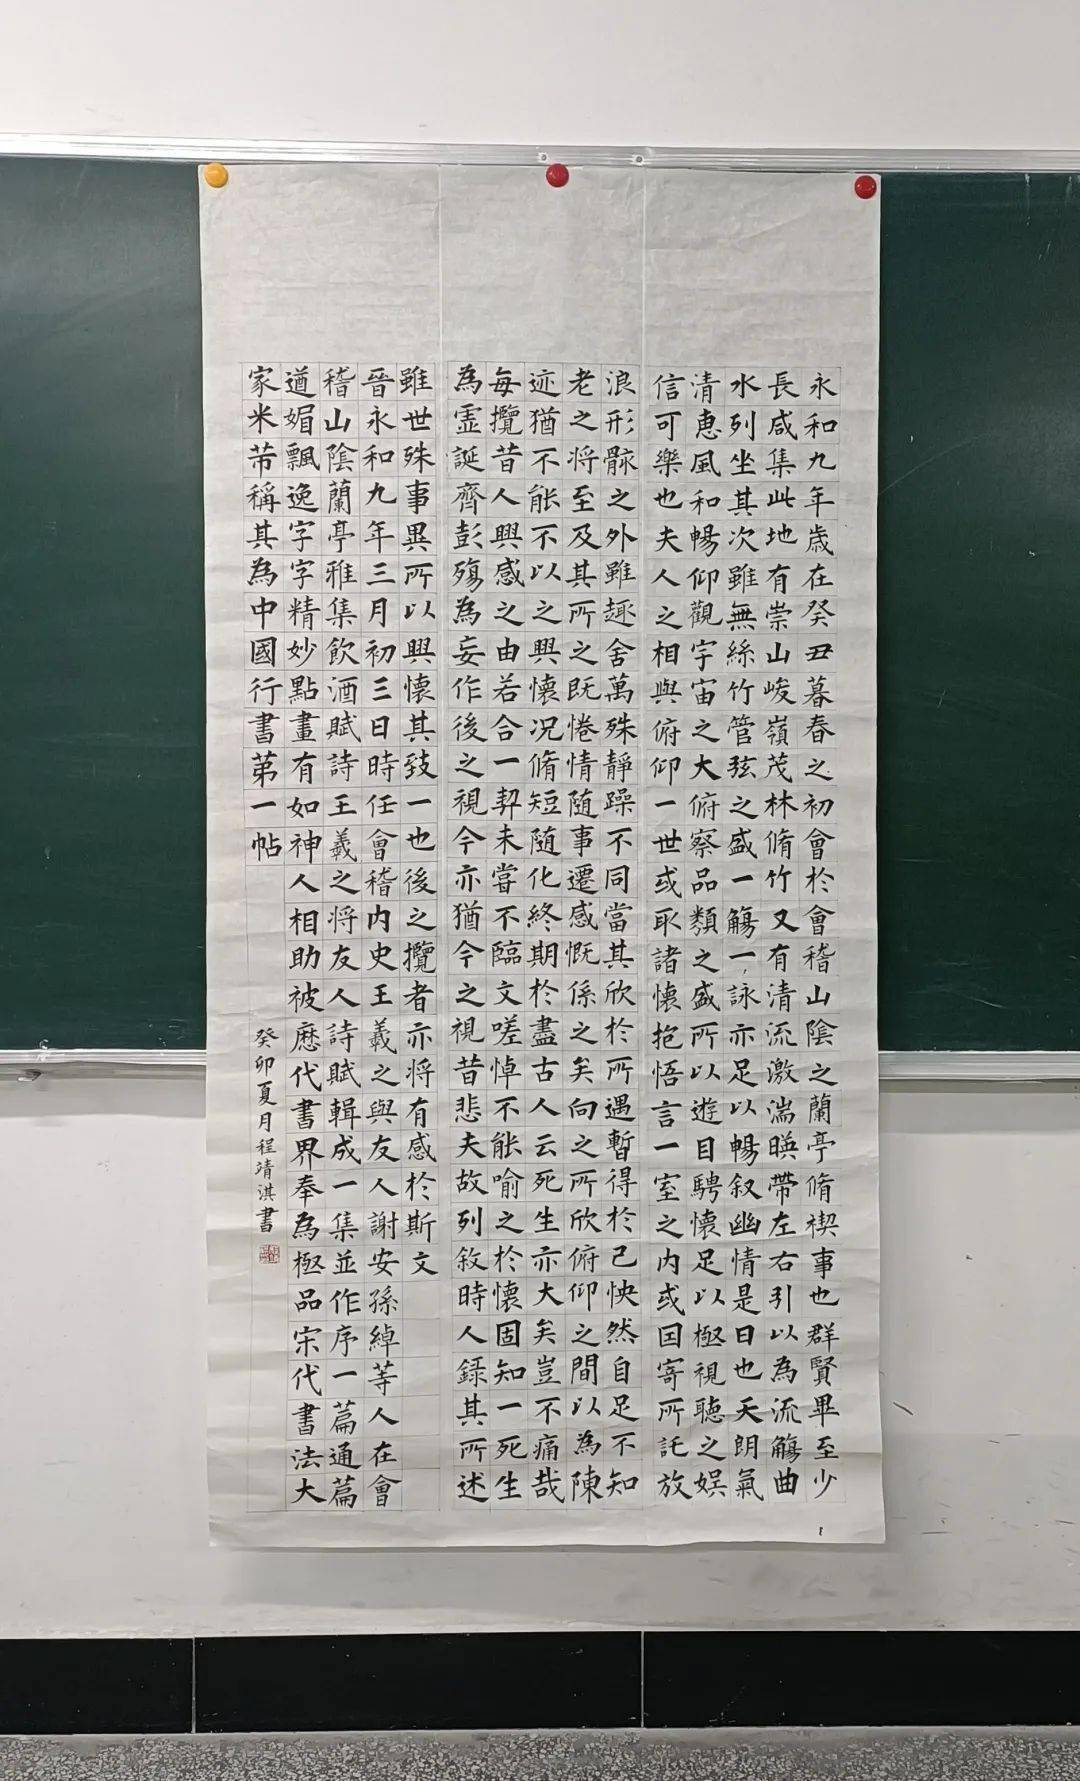 永和九年歲在癸丑暮春之初會於會稽山陰之蘭亭脩禊事也群賢畢至少
長咸集此地有崇山峻嶺茂林脩竹又有清流激湍暎帶左右引以為流觴曲
水列坐其次雖無絲竹管弦之盛一觴一詠亦足以暢叙幽情是日也天朗氣
清惠風和暢仰觀宇宙之大俯察品類之盛所以遊目騁懷足以極視聽之娛
信可樂也夫人之相與俯仰一世或取諸懷抱悟言一室之内或因寄所託放
浪形骸之外雖趣舍萬殊靜躁不同當其欣於所遇暫得於己怏然自足不知
老之将至及其所之既惓情隨事遷感慨係之矣向之所欣俯仰之間以為陳
迹猶不能不以之興懷况脩短隨化終期於盡古人云死生亦大矣豈不痛哉
每攬昔人興感之由若合一契未嘗不臨文嗟悼不能喻之於懷固知一死生
為虛誕齊彭殤為妄作後之視今亦猶今之視昔悲夫故列敘時人錄其所述
雖世殊事異所以興懷其致一也後之攬者亦将有感於斯文
晉永和九年三月初三日時任會稽内史王羲之與友人謝安孫綽等人在會
稽山陰蘭亭雅集飲酒賦詩王羲之将友人詩賦輯成一集並作序一篇通篇
遒媚飄逸字字精妙點畫有如神人相助被歷代書界奉為極品宋代書法大
家米芾稱其為中國行書第一帖
癸卯夏月程靖淇書